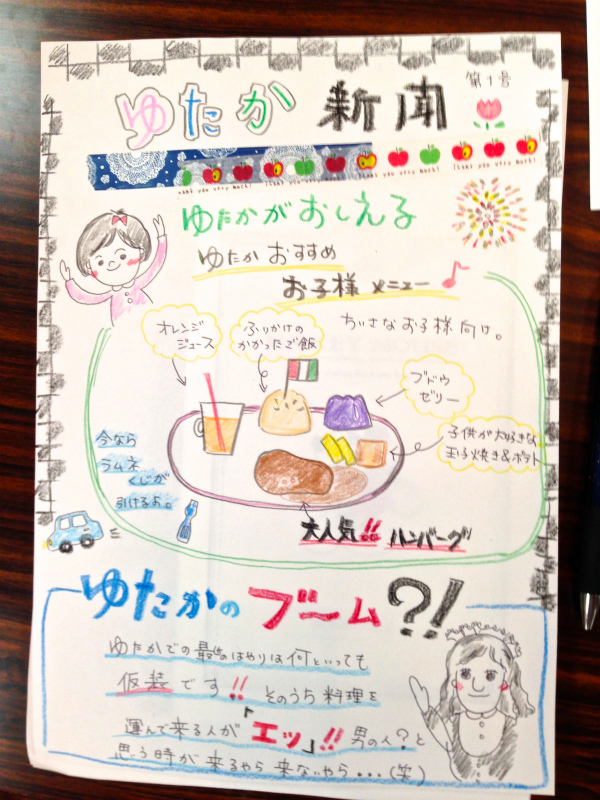 第1号
ゆたか 新聞
thank you very much! thank you very much! thank you very much!
ゆたかがおしえる
ゆたか おすすめ
お子様 メニュー
ちいさなお子様向け。
オレンジ
ジュース
ふりかけの
かかったご飯
ブドウ
ゼリー
子供が大好きな
玉子焼き&ポテト
今なら
ラムネ
くじが
引けるよ。
大人気!! ハンバーグ
ゆたかの ブーム?!
ゆたかでの最近のはやりは何といっても
仮装です!! そのうち料理を
運んで来る人が「エッ」!! 男の人?と
思う時が来るやら来ないやら・・・(笑)